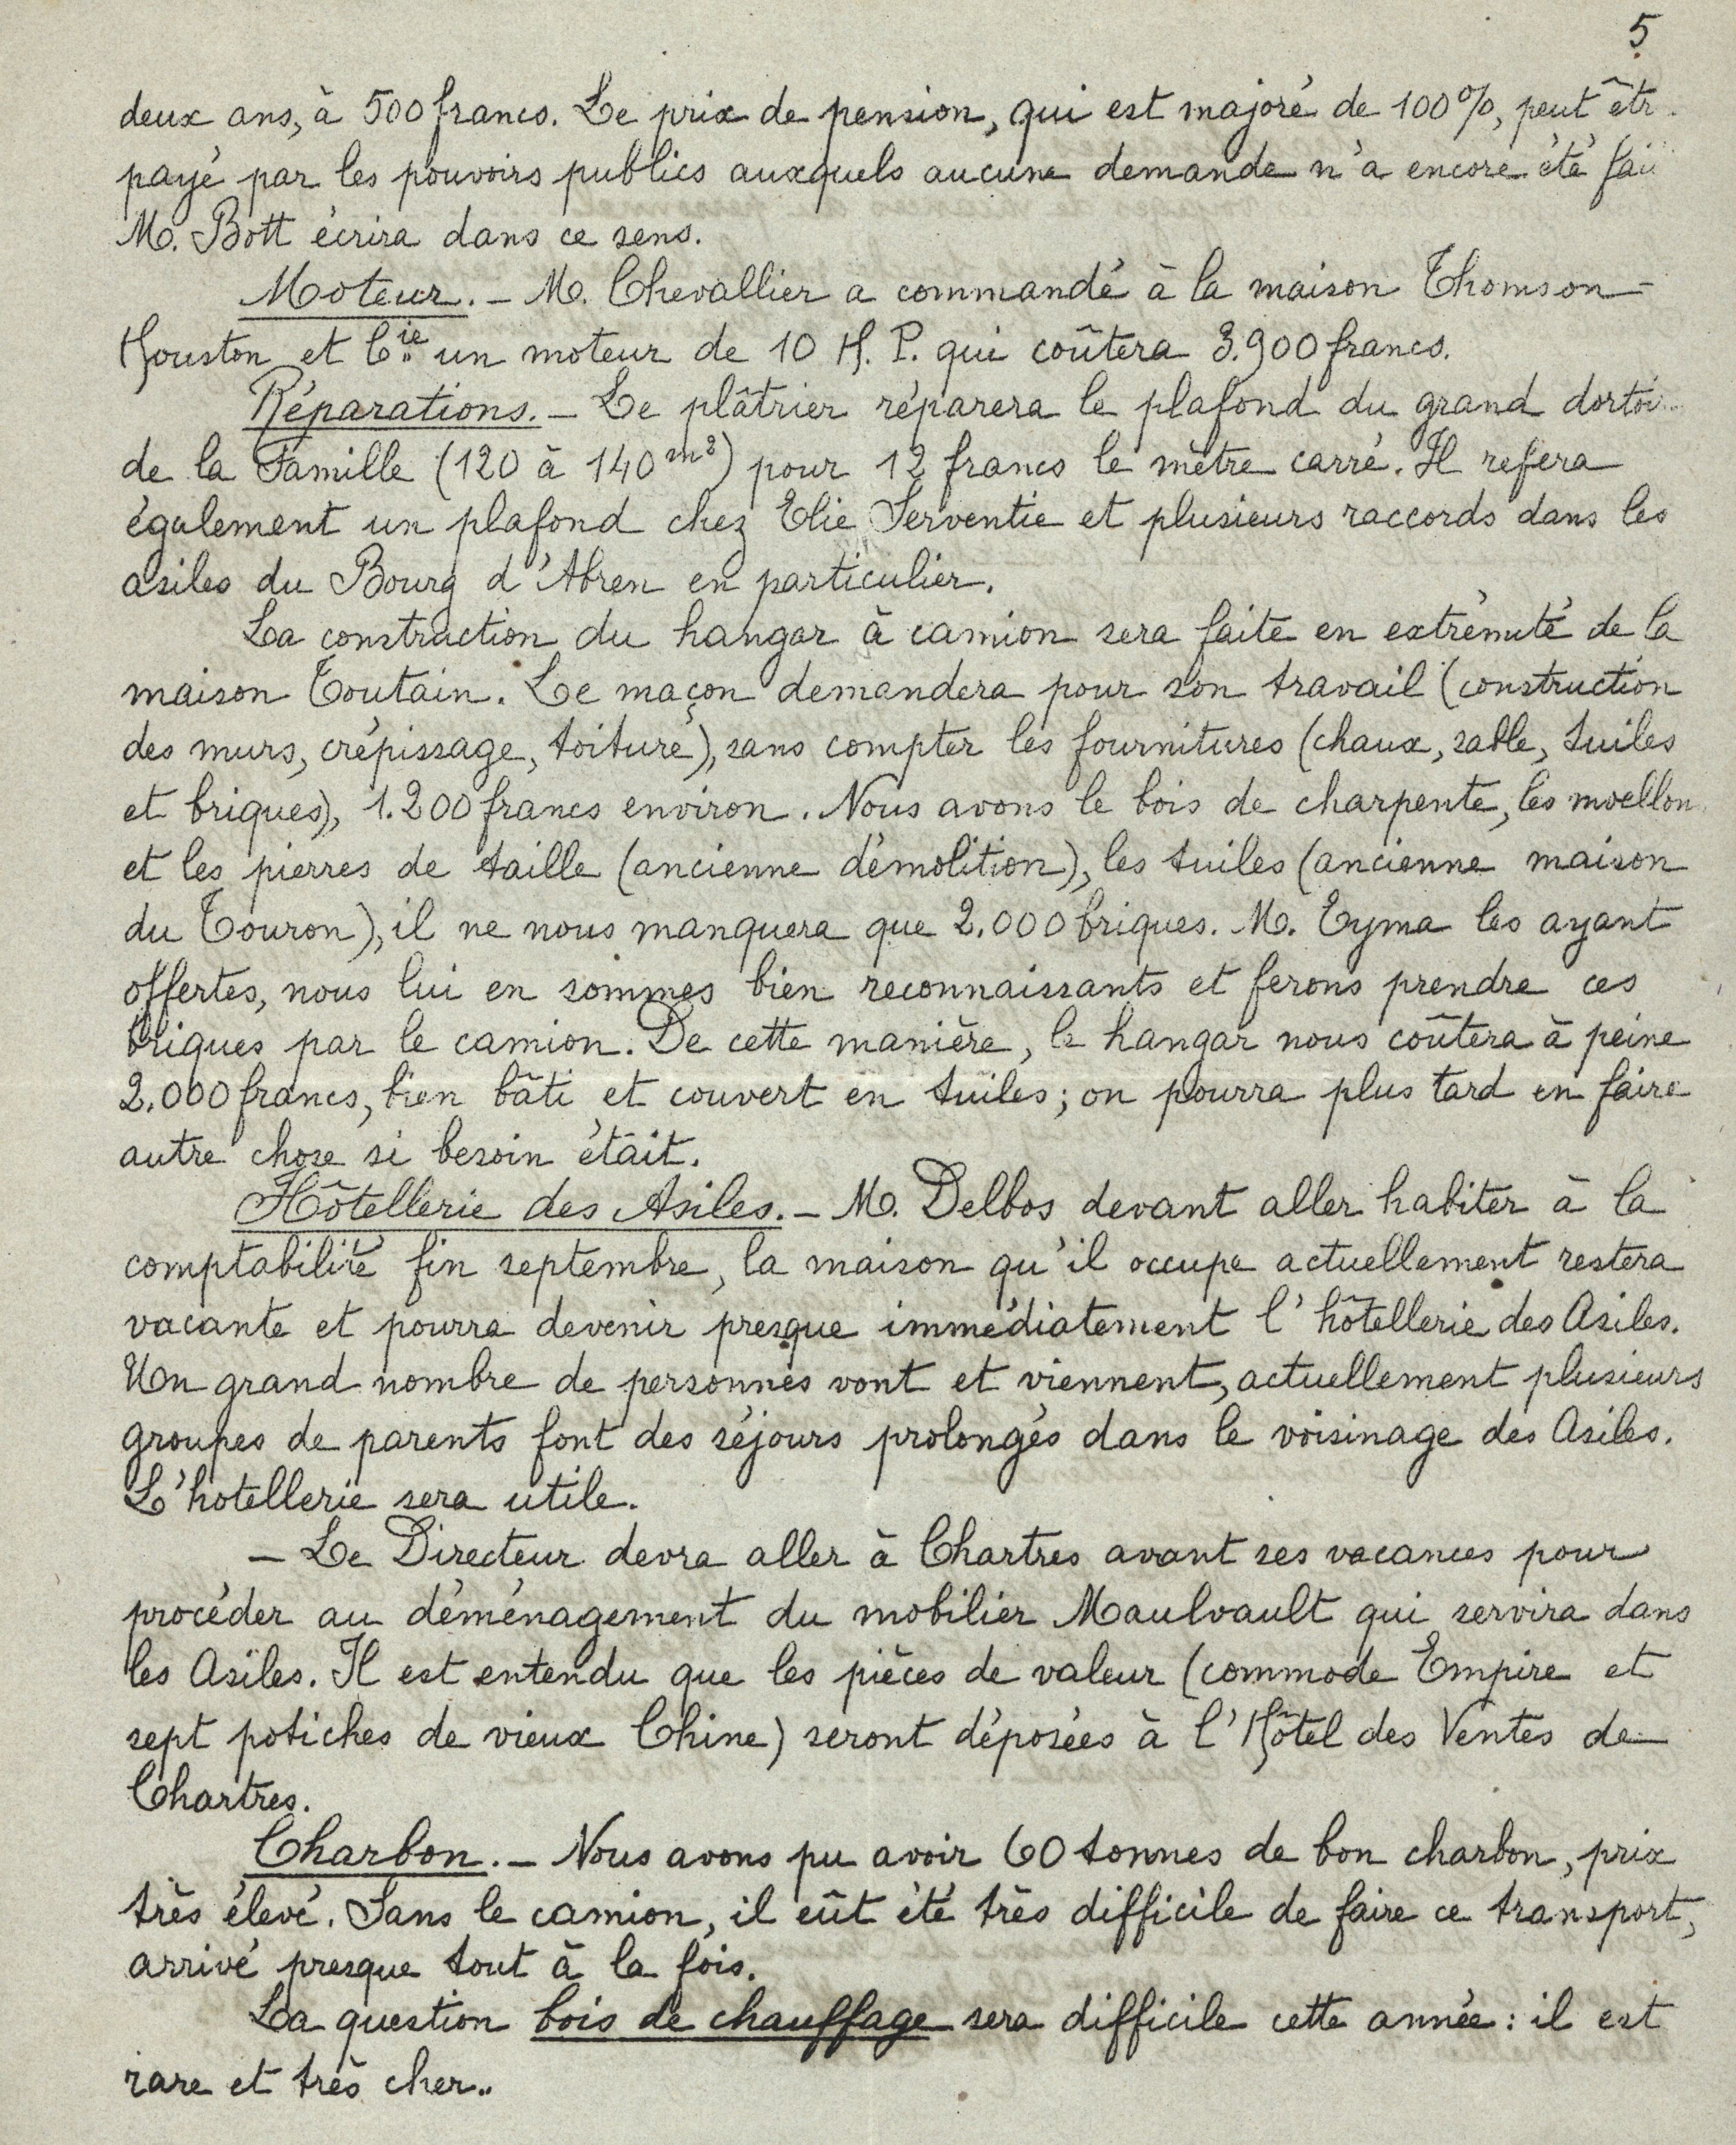 5
deux ans, à 500 francs. Le prix de pension, qui est majoré de 100%, peut êtr
payé par les pouvoirs publics auxquels aucune demande n'a encore été fai
M. Bott écrira dans ce sens.
Moteur. - M. Chevallier a commandé à la maison Thomson-
Houston et Cie un moteur de 10 H. P. qui coûtera 3.900 francs.
Réparations. - Le plâtrier réparera le plafond du grand dortoi
de la Famille (120 à 140 m2) pour 12 francs le mètre carré. Il refera
également un plafond chez Elie Serventie et plusieurs raccords dans les
asiles du Bourg d'Abren en particulier.
La construction du hangar à camion sera faite en extrémité de la
maison Toutain. Le maçon demandera pour son travail (construction
des murs, crépissage, toiture), sans compter les fournitures (chaux, sable, tuiles
et briques), 1.200 francs environ. Nous avons le bois de charpente, les moellon
et les pierres de taille (ancienne démolition), les tuiles (ancienne maison
du Touron), il ne nous manquera que 2.000 briques. M. Eyma les ayant
offertes, nous lui en sommes bien reconnaissants et ferons prendre ces
briques par le camion. De cette manière, le hangar nous coûtera à peine
2.000 francs, bien bâti et couvert en tuiles; on pourra plus tard en faire
autre chose si besoin était.
Hôtellerie des Asiles. - M. Delbos devant aller habiter à la
comptabilité fin septembre, la maison qu'il occupe actuellement restera
vacante et pourra devenir presque immédiatement l'hôtellerie des Asiles.
Un grand nombre de personnes vont et viennent, actuellement plusieurs
groupes de parents font des séjours prolongés dans le voisinage des Asiles.
L'hotellerie sera utile.
- Le Directeur devra aller à Chartres avant ses vacances pour
procéder au déménagement du mobilier Maulvault qui servira dans
les Asiles. Il est entendu que les pièces de valeur (commode Empire et
sept potiches de vieux Chine) seront déposées à l'Hôtel des Ventes de
Chartres.
Charbon. - Nous avons pu avoir 60 tonnes de bon charbon, prix
très élevé. Sans le camion, il eût été très difficile de faire ce transport,
arrivé presque tout à la fois.
La question bois de chauffage sera difficile cette année: il est
rare et très cher..